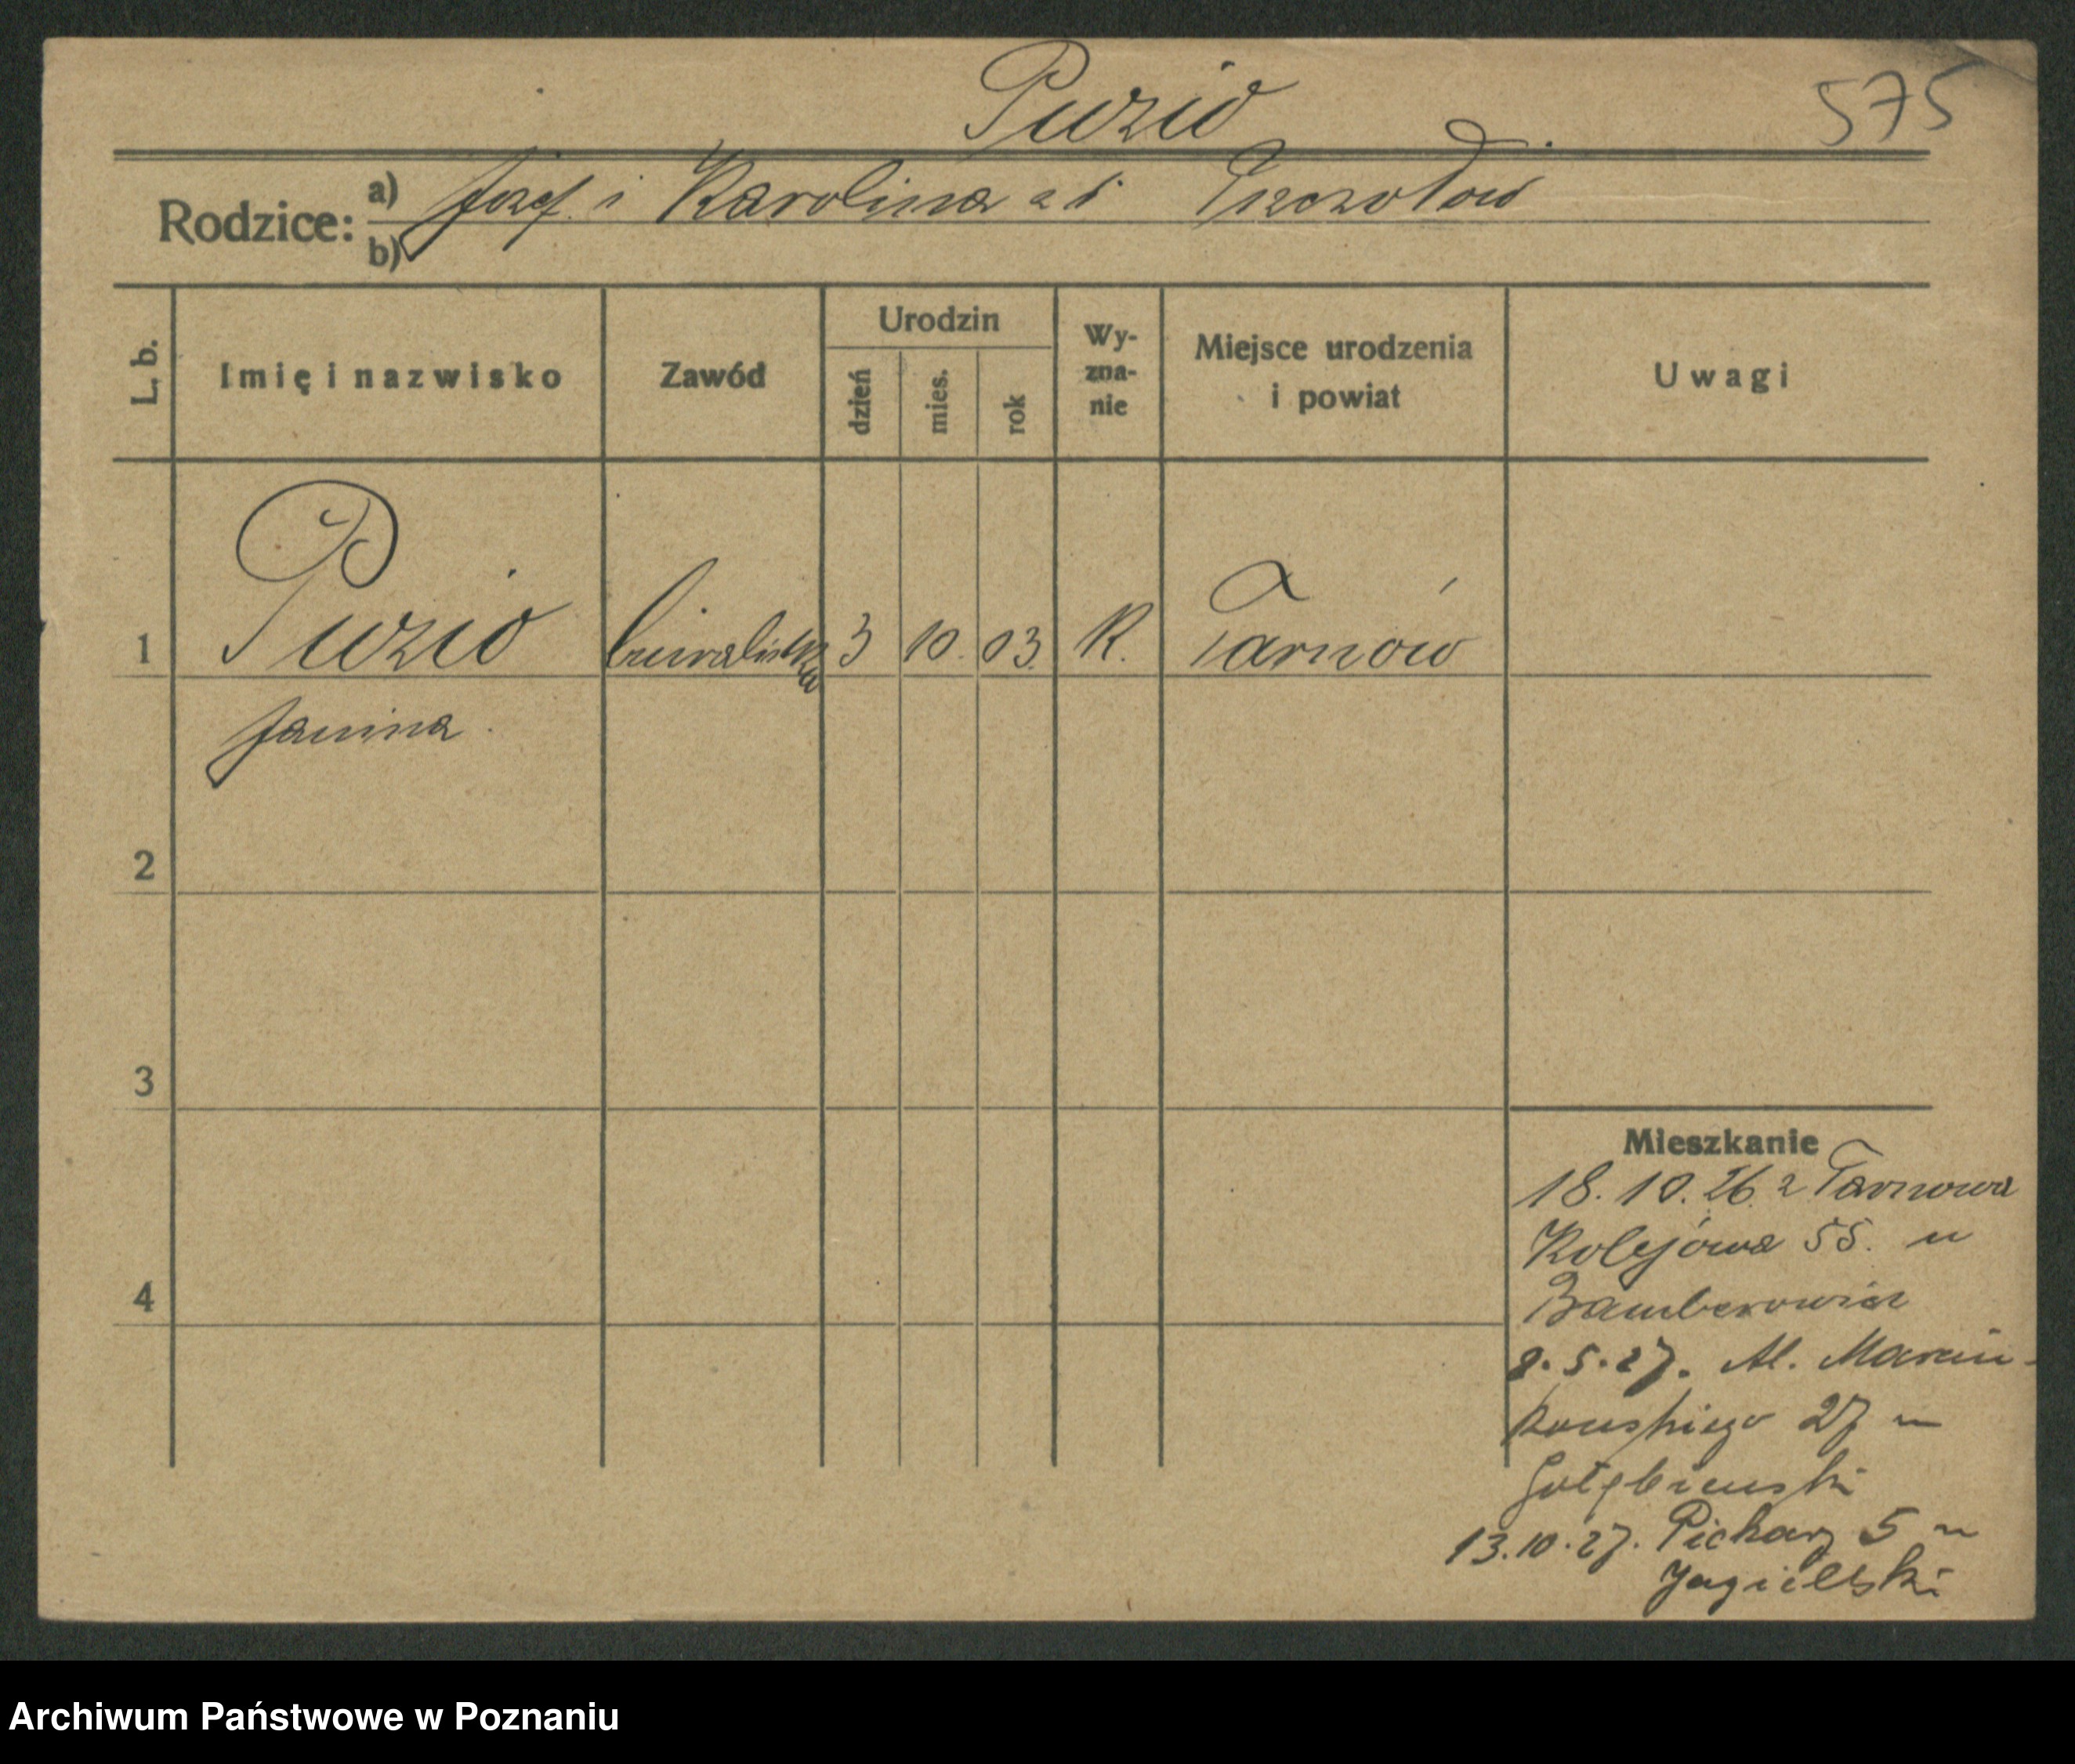 Puzio
575
Rodzice: a) Józef i Karolina z d.
b)
L. b.
Imię i nazwisko
Zawód
Urodzin
dzień
mies.
rok
Wy-
zna-
nie
Miejsce urodzenia
i powiat
Uwagi
1 Puzio biuralistka 3 10. 03. K. Tarnów
Janina.
2
3
4
Mieszkanie
18. 10. 26 z Tarnowa
Kolejowa 55. u
9.5.27. Al. Marcin-
kowskiego 27 u
Gołębiewski
13.10.27. Piekary 5 u
Jagielski
Archiwum Państwowe w Poznaniu